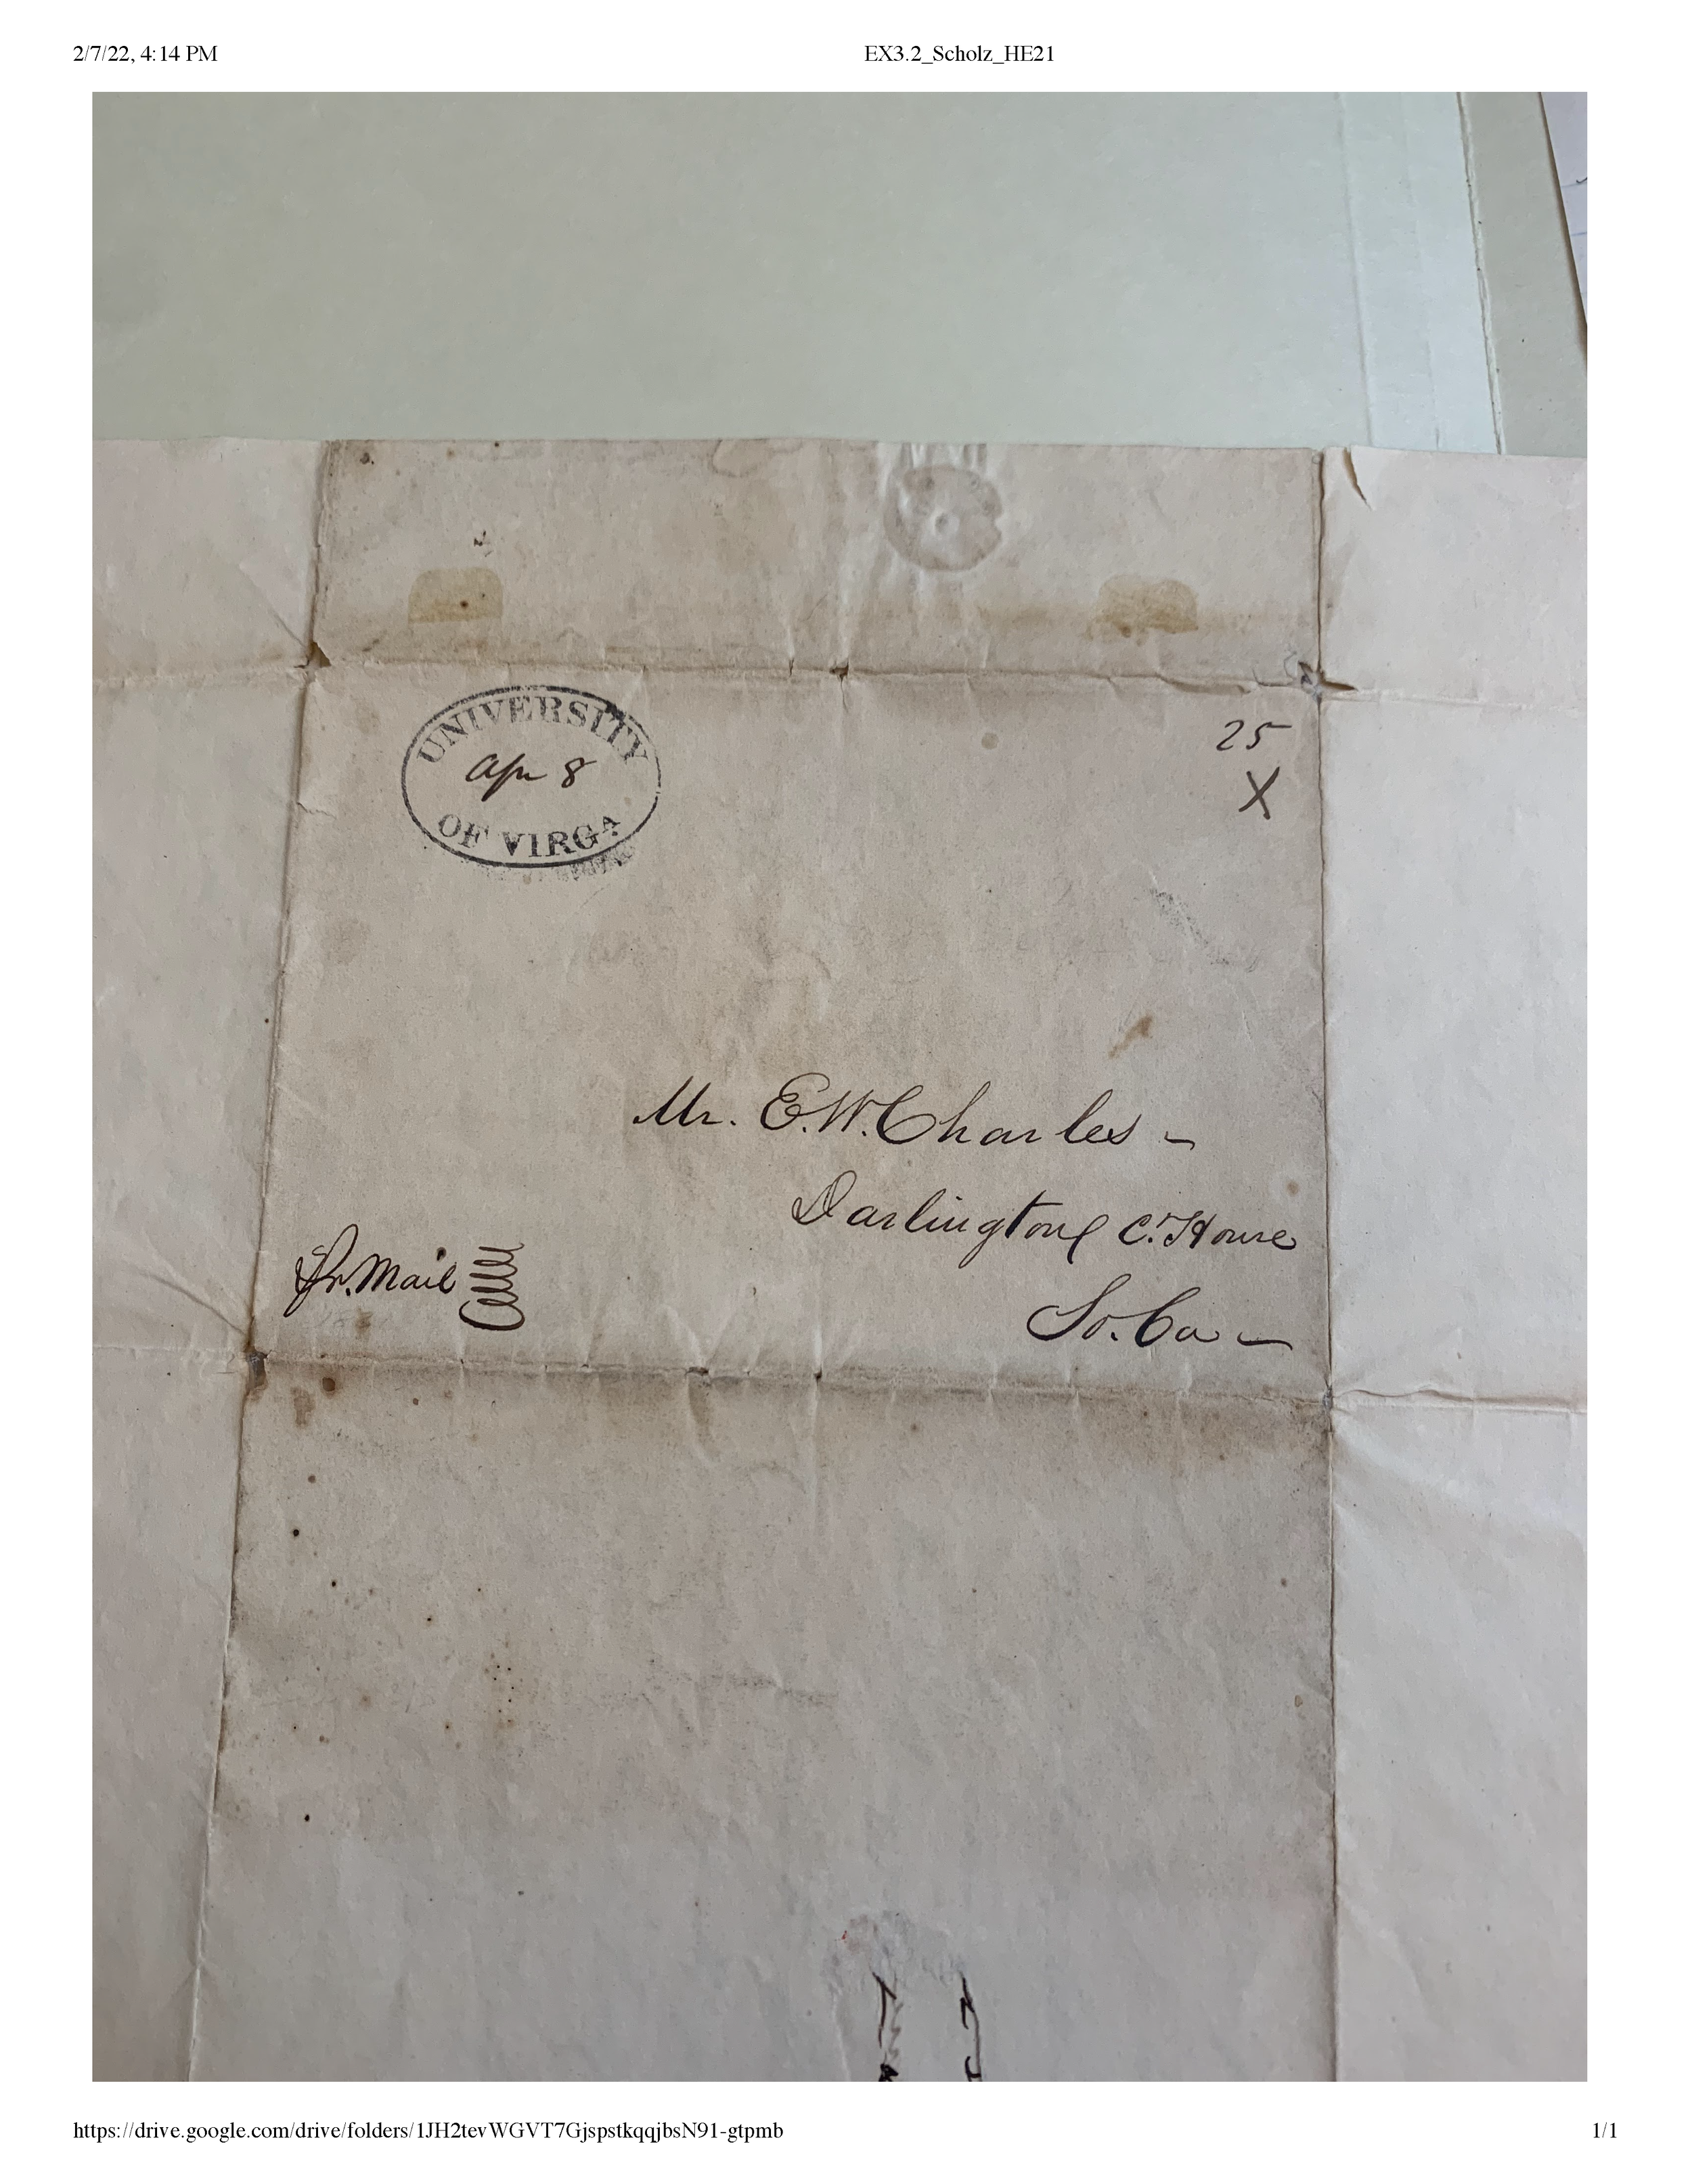 2/7/22, 4:14 PM
EX3.2_Scholz_HE21
UNIVERSITY
Apr 8
OF VIRGA
25
X
Mr. E.W. Charles -
Darlington C. House
Mail
So. Ca -
https://drive.google.com/drive/folders/1JH2tevWGVT7GjspstkqqjbsN91-gtpmb
1/1